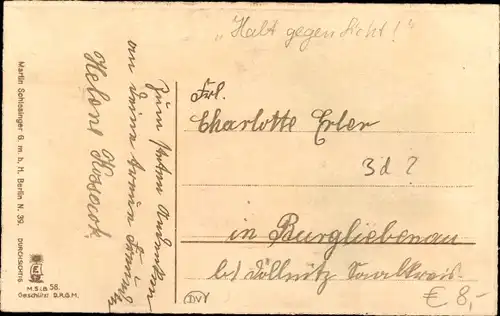 „Halt gegen Licht!“
Zum steten Andenken
an deine treue Freundin
Helene Kossack
Frl.
Charlotte Erler
3d?
in Burgliebenau
bei Döllnitz Saalkreis
€ 8,-
DVV
Martin Schlesinger G. m. b. H. Berlin N. 39.
DURCHSICHTIG
M.S.i.B 58.
Geschützt D.R.G.M.